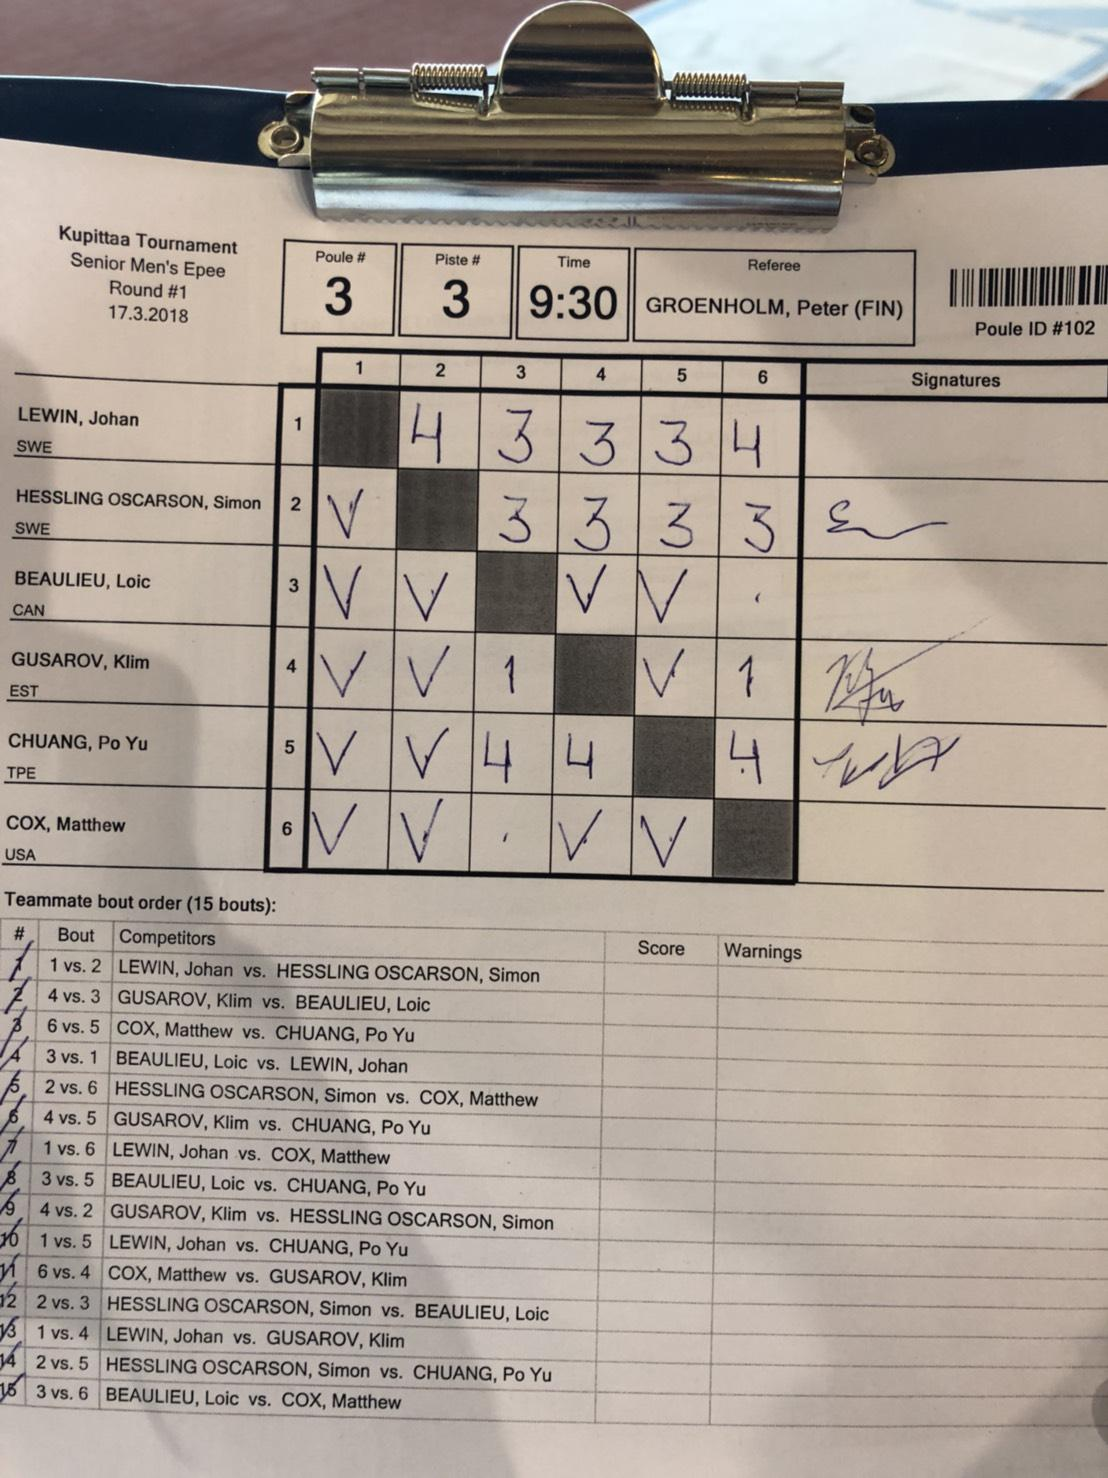 Kupittaa Tournament
Senior Men's Epee
Round #1
17.3.2018
Poule #
3
Piste #
3
Time
9:30
Referee
GROENHOLM, Peter (FIN)
Poule ID #102
1 2 3 4 5 6 Signatures
LEWIN, Johan 1 4 3 3 3 4
SWE
HESSLING OSCARSON, Simon 2 V 3 3 3 3
SWE
BEAULIEU, Loic 3 V V V V
CAN
GUSAROV, Klim 4 V V 1 V 1
EST
CHUANG, Po Yu 5 V V 4 4 4
TPE
COX, Matthew 6 V V V V
USA
Teammate bout order (15 bouts):
# Bout Competitors Score Warnings
1 1 vs. 2 LEWIN, Johan vs. HESSLING OSCARSON, Simon
2 4 vs. 3 GUSAROV, Klim vs. BEAULIEU, Loic
3 6 vs. 5 COX, Matthew vs. CHUANG, Po Yu
4 3 vs. 1 BEAULIEU, Loic vs. LEWIN, Johan
5 2 vs. 6 HESSLING OSCARSON, Simon vs. COX, Matthew
6 4 vs. 5 GUSAROV, Klim vs. CHUANG, Po Yu
7 1 vs. 6 LEWIN, Johan vs. COX, Matthew
8 3 vs. 5 BEAULIEU, Loic vs. CHUANG, Po Yu
9 4 vs. 2 GUSAROV, Klim vs. HESSLING OSCARSON, Simon
10 1 vs. 5 LEWIN, Johan vs. CHUANG, Po Yu
11 6 vs. 4 COX, Matthew vs. GUSAROV, Klim
12 2 vs. 3 HESSLING OSCARSON, Simon vs. BEAULIEU, Loic
13 1 vs. 4 LEWIN, Johan vs. GUSAROV, Klim
14 2 vs. 5 HESSLING OSCARSON, Simon vs. CHUANG, Po Yu
15 3 vs. 6 BEAULIEU, Loic vs. COX, Matthew